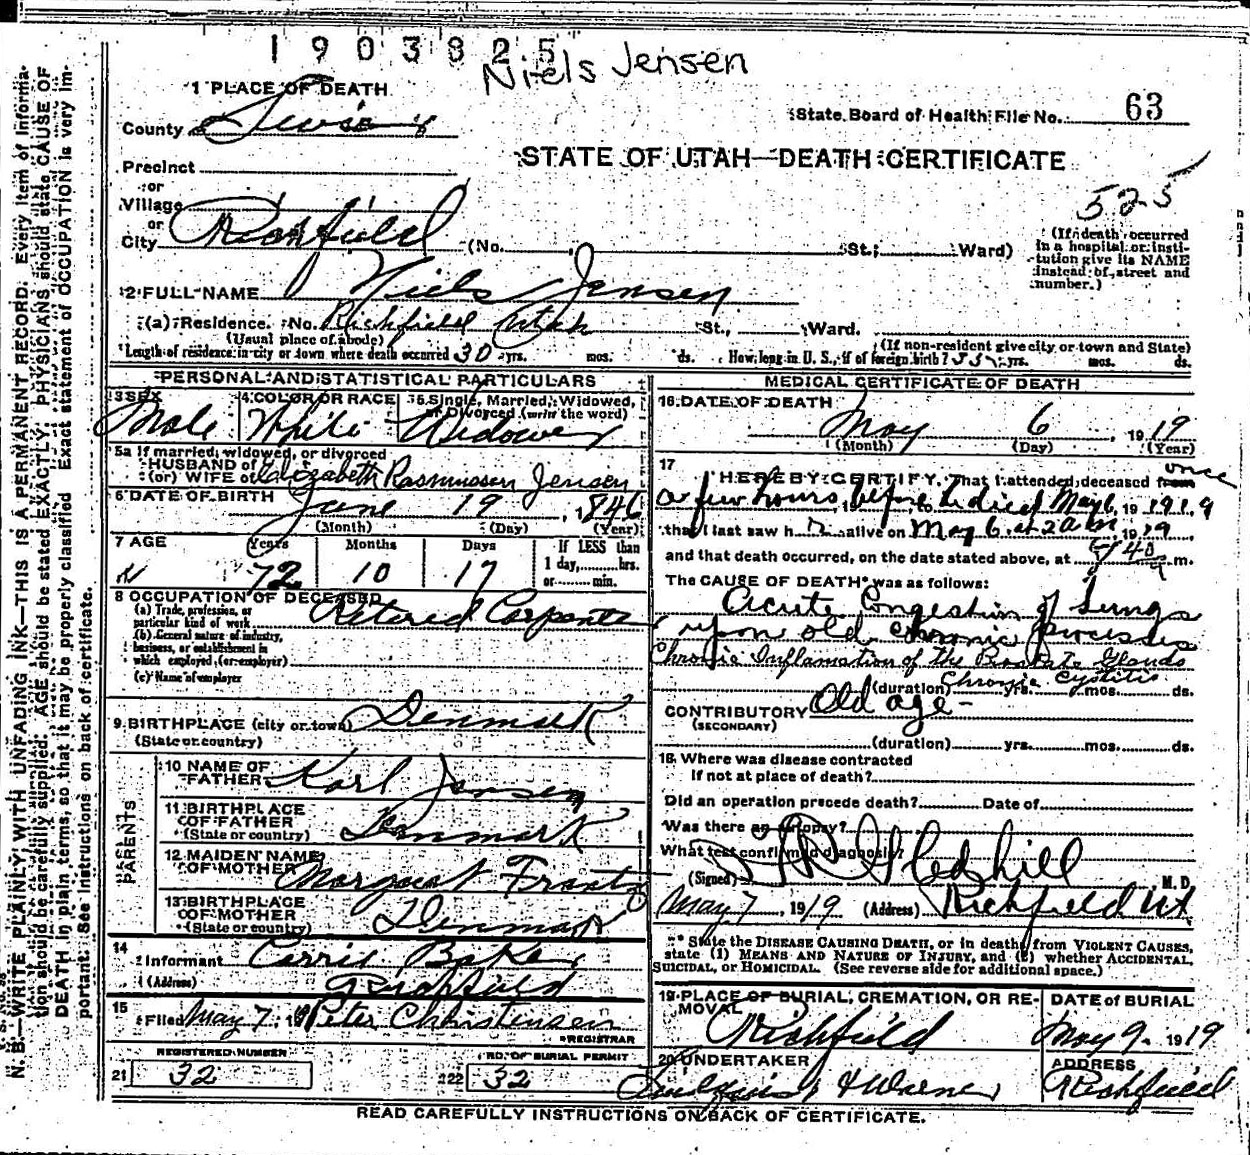 1903825
Niels Jensen
1 PLACE OF DEATH
County Sevier
State Board of Health File No. 63
STATE OF UTAH—DEATH CERTIFICATE
Precinct
or
Village
525
or
City Richfield (No. St.; Ward)
(If death occurred in a hospital or institution give its NAME instead of street and number.)
2 FULL NAME Niels Jensen
(a) Residence. No. Richfield Utah St., Ward.
(Usual place of abode) (If non-resident give city or town and State)
Length of residence in city or town where death occurred 30 yrs. mos. ds. How long in U. S., if of foreign birth? 55 yrs. mos. ds.
PERSONAL AND STATISTICAL PARTICULARS
3 SEX Male
4 COLOR OR RACE White
5 Single, Married, Widowed, or Divorced (write the word) Widower
5a If married, widowed, or divorced
HUSBAND of
(or) WIFE of Elizabeth Rasmussen Jensen
6 DATE OF BIRTH June 19, 1846
(Month) (Day) (Year)
7 AGE Years Months Days If LESS than 1 day, hrs. or min.
72 10 17
8 OCCUPATION OF DECEASED
(a) Trade, profession, or particular kind of work Retired Carpenter
(b) General nature of industry, business, or establishment in which employed (or employer)
(c) Name of employer
9 BIRTHPLACE (city or town) Denmark
(State or country)
PARENTS
10 NAME OF FATHER Karl Jensen
11 BIRTHPLACE OF FATHER Denmark
(State or country)
12 MAIDEN NAME OF MOTHER Margaret
13 BIRTHPLACE OF MOTHER Denmark
(State or country)
14
Informant Carrie Baker
(Address) Richfield
15
Filed May 7, 19 Peter Christensen
REGISTRAR
REGISTERED NUMBER
21 32
NO. OF BURIAL PERMIT
22 32
MEDICAL CERTIFICATE OF DEATH
16 DATE OF DEATH
May 6, 1919
(Month) (Day) (Year)
17
I HEREBY CERTIFY, That I attended deceased from once
a few hours before he died May 6, 19 1919
that I last saw h alive on May 6 at 2 am 1919
and that death occurred, on the date stated above, at 40 m.
The CAUSE OF DEATH* was as follows:
Acute Congestion of Lungs
upon old chronic processes
Chronic Inflamation of the Prostate Glands
Chronic Cystitis
(duration) yrs. mos. ds.
CONTRIBUTORY Old age -
(SECONDARY)
(duration) yrs. mos. ds.
18 Where was disease contracted
If not at place of death?
Did an operation precede death? Date of
Was there an autopsy?
What test confirmed diagnosis?
(Signed) Gledhill M. D.
May 7, 1919 (Address) Richfield Ut
* State the DISEASE CAUSING DEATH, or in deaths from VIOLENT CAUSES,
state (1) MEANS AND NATURE OF INJURY, and (2) whether ACCIDENTAL,
SUICIDAL, or HOMICIDAL. (See reverse side for additional space.)
19 PLACE OF BURIAL, CREMATION, OR REMOVAL DATE of BURIAL
Richfield May 9, 1919
20 UNDERTAKER ADDRESS
& Warner Richfield
READ CAREFULLY INSTRUCTIONS ON BACK OF CERTIFICATE.
N. B.—WRITE PLAINLY, WITH UNFADING INK—THIS IS A PERMANENT RECORD. Every item of information should be carefully supplied. AGE should be stated EXACTLY. PHYSICIANS should state CAUSE OF DEATH in plain terms, so that it may be properly classified. Exact statement of OCCUPATION is very important. See instructions on back of certificate.